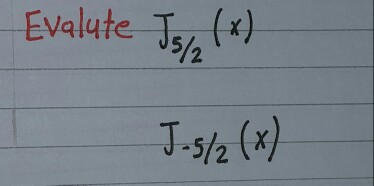 Evalute J₅/₂ (x)
J₋₅/₂ (x)